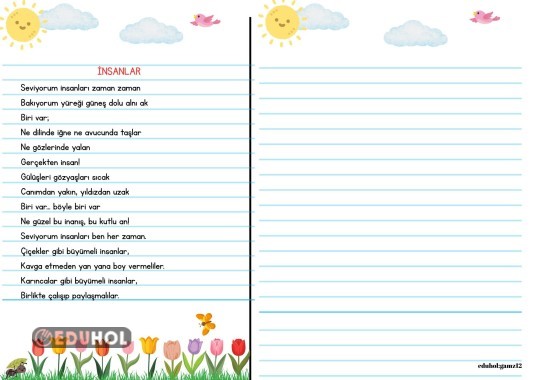 İNSANLAR
Seviyorum insanları zaman zaman
Bakıyorum yüreği güneş dolu alnı ak
Biri var;
Ne dilinde iğne ne avucunda taşlar
Ne gözlerinde yalan
Gerçekten insan!
Gülüşleri gözyaşları sıcak
Canımdan yakın, yıldızdan uzak
Biri var... böyle biri var
Ne güzel bu inanış, bu kutlu an!
Seviyorum insanları ben her zaman.
Çiçekler gibi büyümeli insanlar,
Kavga etmeden yan yana boy vermeliler.
Karıncalar gibi büyümeli insanlar,
Birlikte çalışıp paylaşmalılar.
EDUHOL
eduhol:gamz12